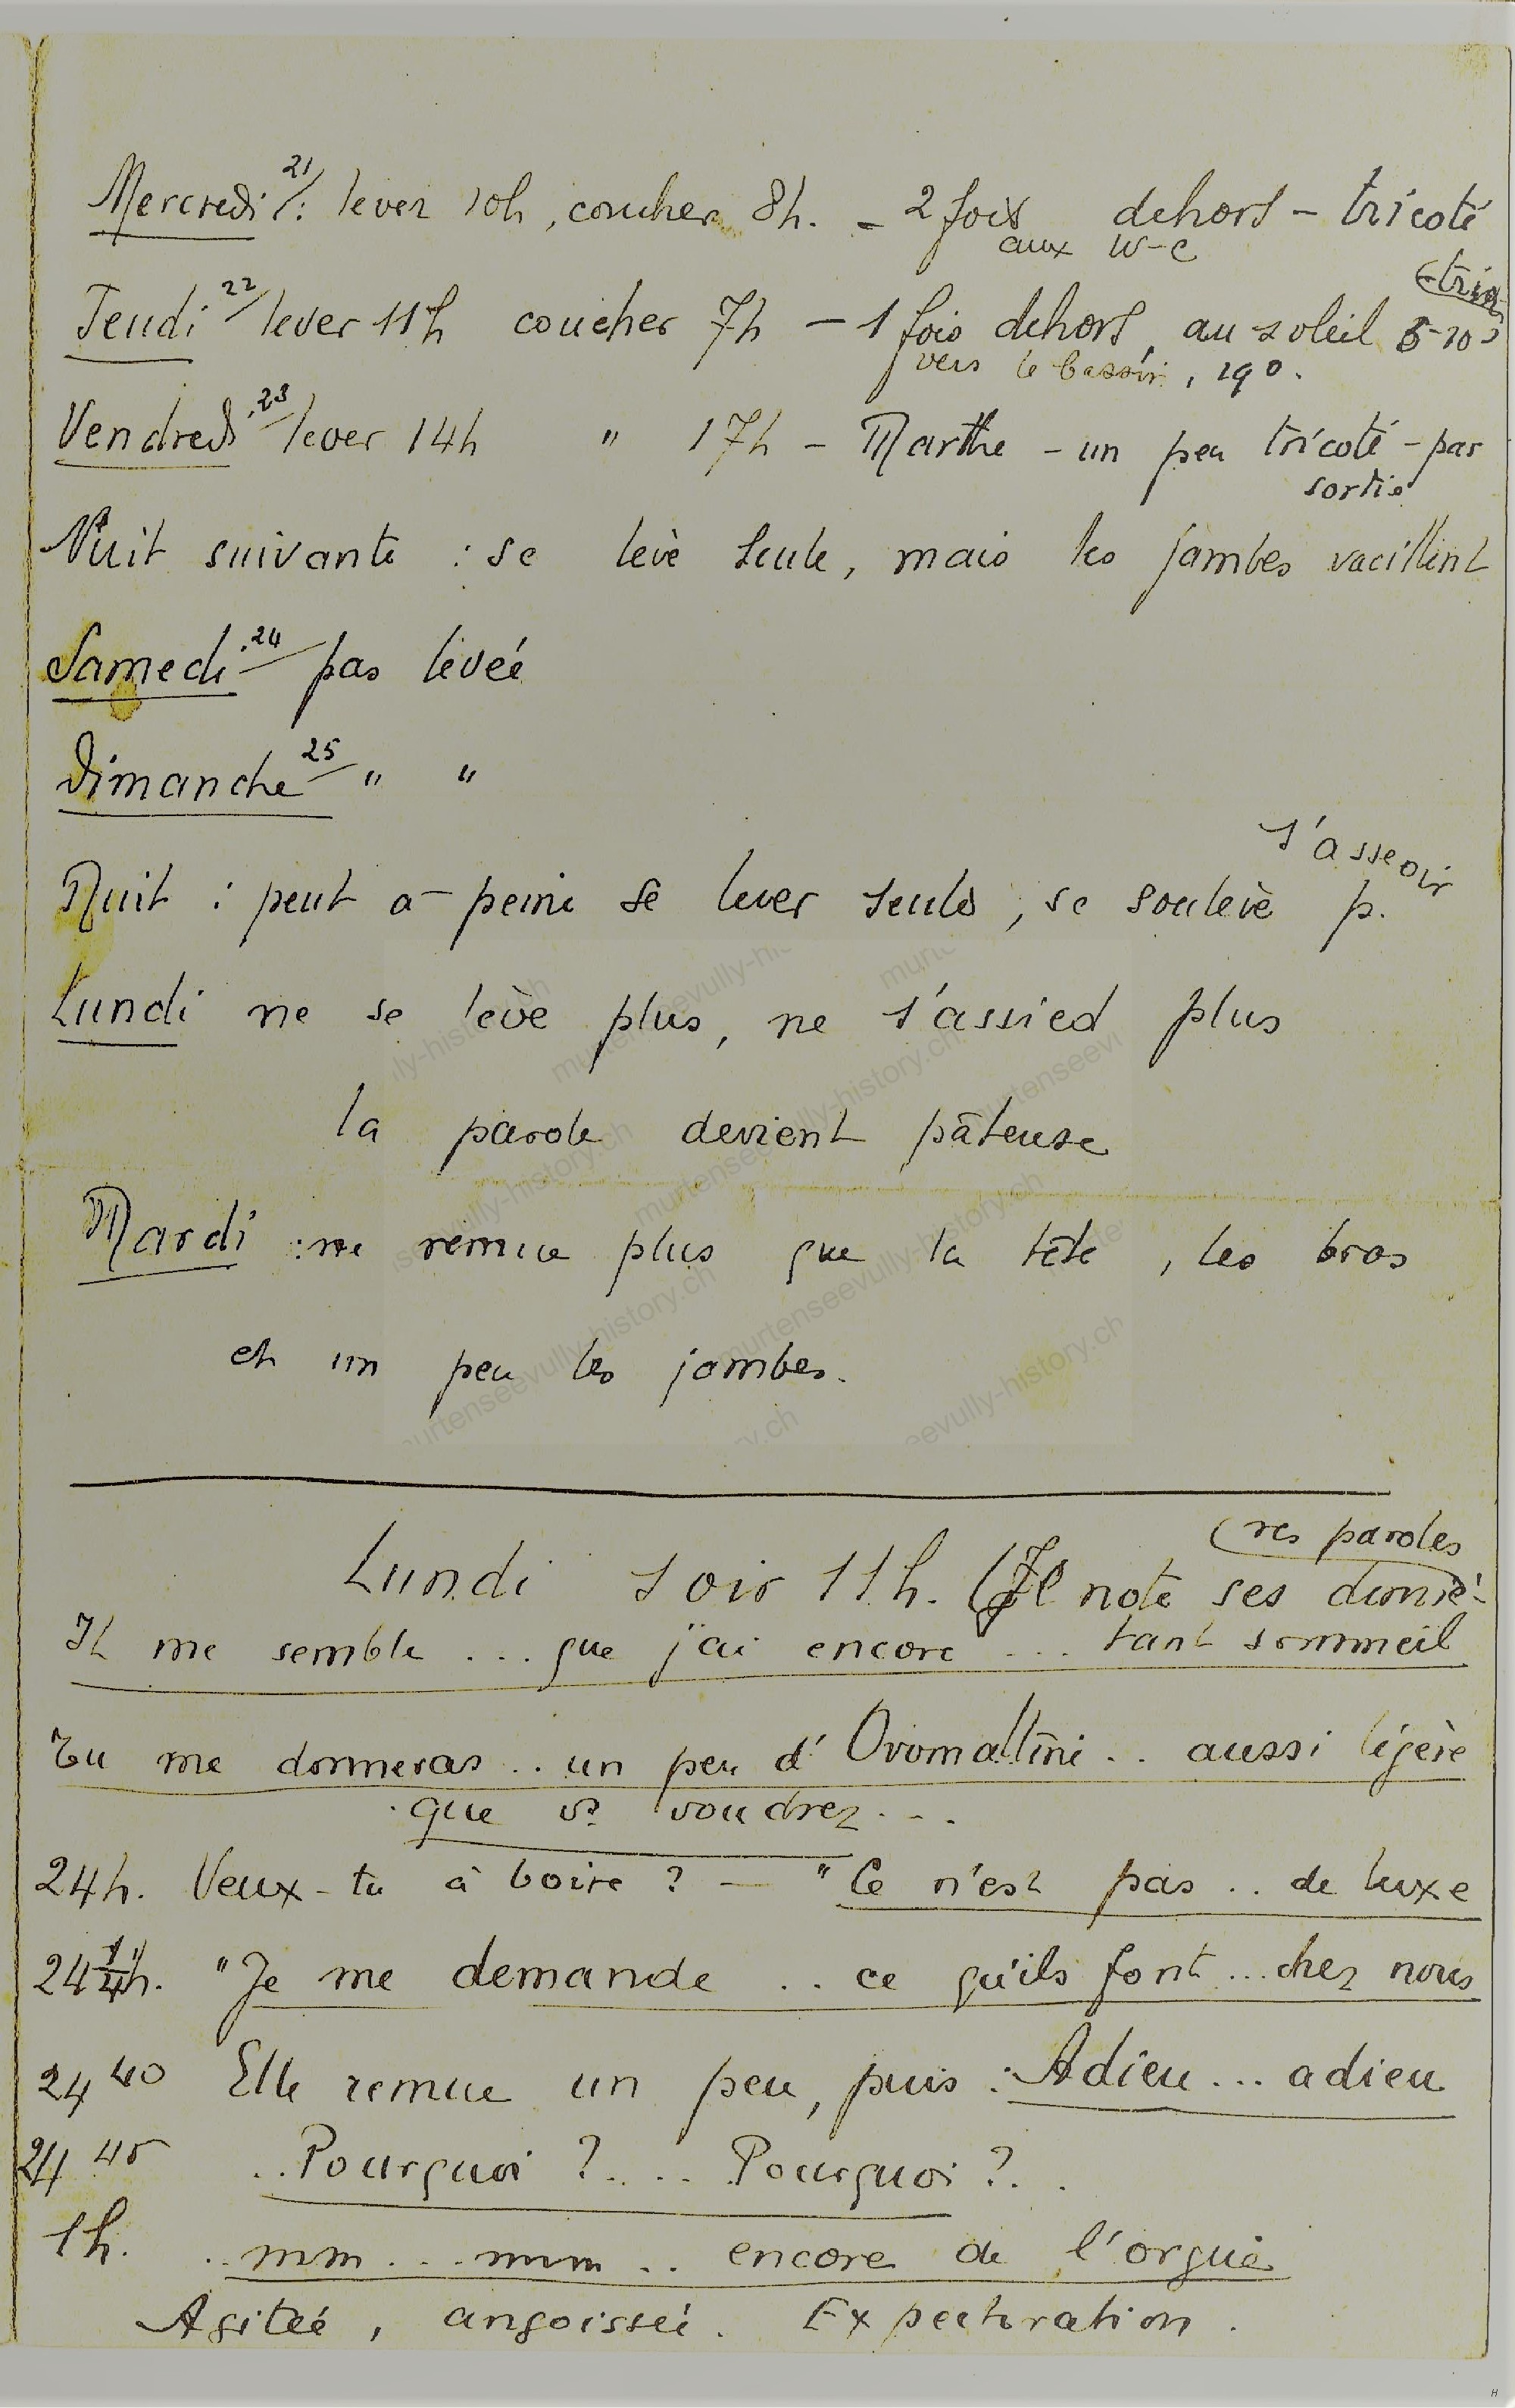 Mercredi 21/: lever 10h, coucher 8h. - 2 fois dehors - tricoté
aux w-c
Jeudi 22/ lever 11h coucher 7h - 1 fois dehors, au soleil 5-10'
vers le bassin, 19°.
Vendredi 23/ lever 14h " 17h - Marthe - un peu tricoté - pas
sortie
Nuit suivante : se lève seule, mais les jambes vacillent
Samedi 24/ pas levée
Dimanche 25/ " "
s'asseoir
Nuit : peut à peine se lever seule, se soulève p.
Lundi ne se lève plus, ne s'assied plus
la parole devient pâteuse
Mardi : ne remue plus que la tête, les bras
et un peu les jambes.
res paroles
Lundi soir 11h. (Je note ses derniè-
Il me semble ... que j'ai encore ... tant sommeil
Tu me donneras .. un peu d'Ovomaltine .. aussi légère
que vs voudrez ...
24h. Veux-tu à boire ? — "Ce n'est pas .. de luxe
24 1/4h. "Je me demande .. ce qu'ils font ... chez nous
24 40 Elle remue un peu, puis : Adieu ... adieu
24 45 .. Pourquoi ? .. .. Pourquoi ? . .
1h. .. mm ... mm .. encore de l'orgue
Agitée, angoissée. Expectoration.
murtenseevully-history.ch